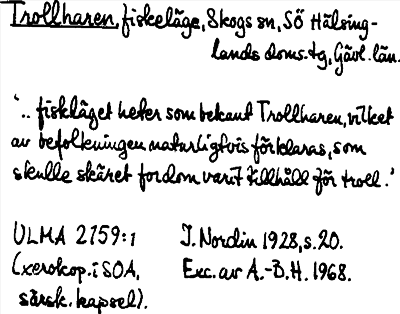 Trollharen, fiskeläge, Skogs sn, SÖ Hälsing-
lands doms.tg, Gävl. län.
'.. fiskläget heter som bekant Trollharen, vilket
av befolkningen naturligtvis förklaras, som
skulle skäret fordom varit tillhåll för troll.'
ULMA 2759:1 J. Nordin 1928, s. 20.
(xerokop. i SOA, Exc. av A.-B.H. 1968.
särsk. kapsel).